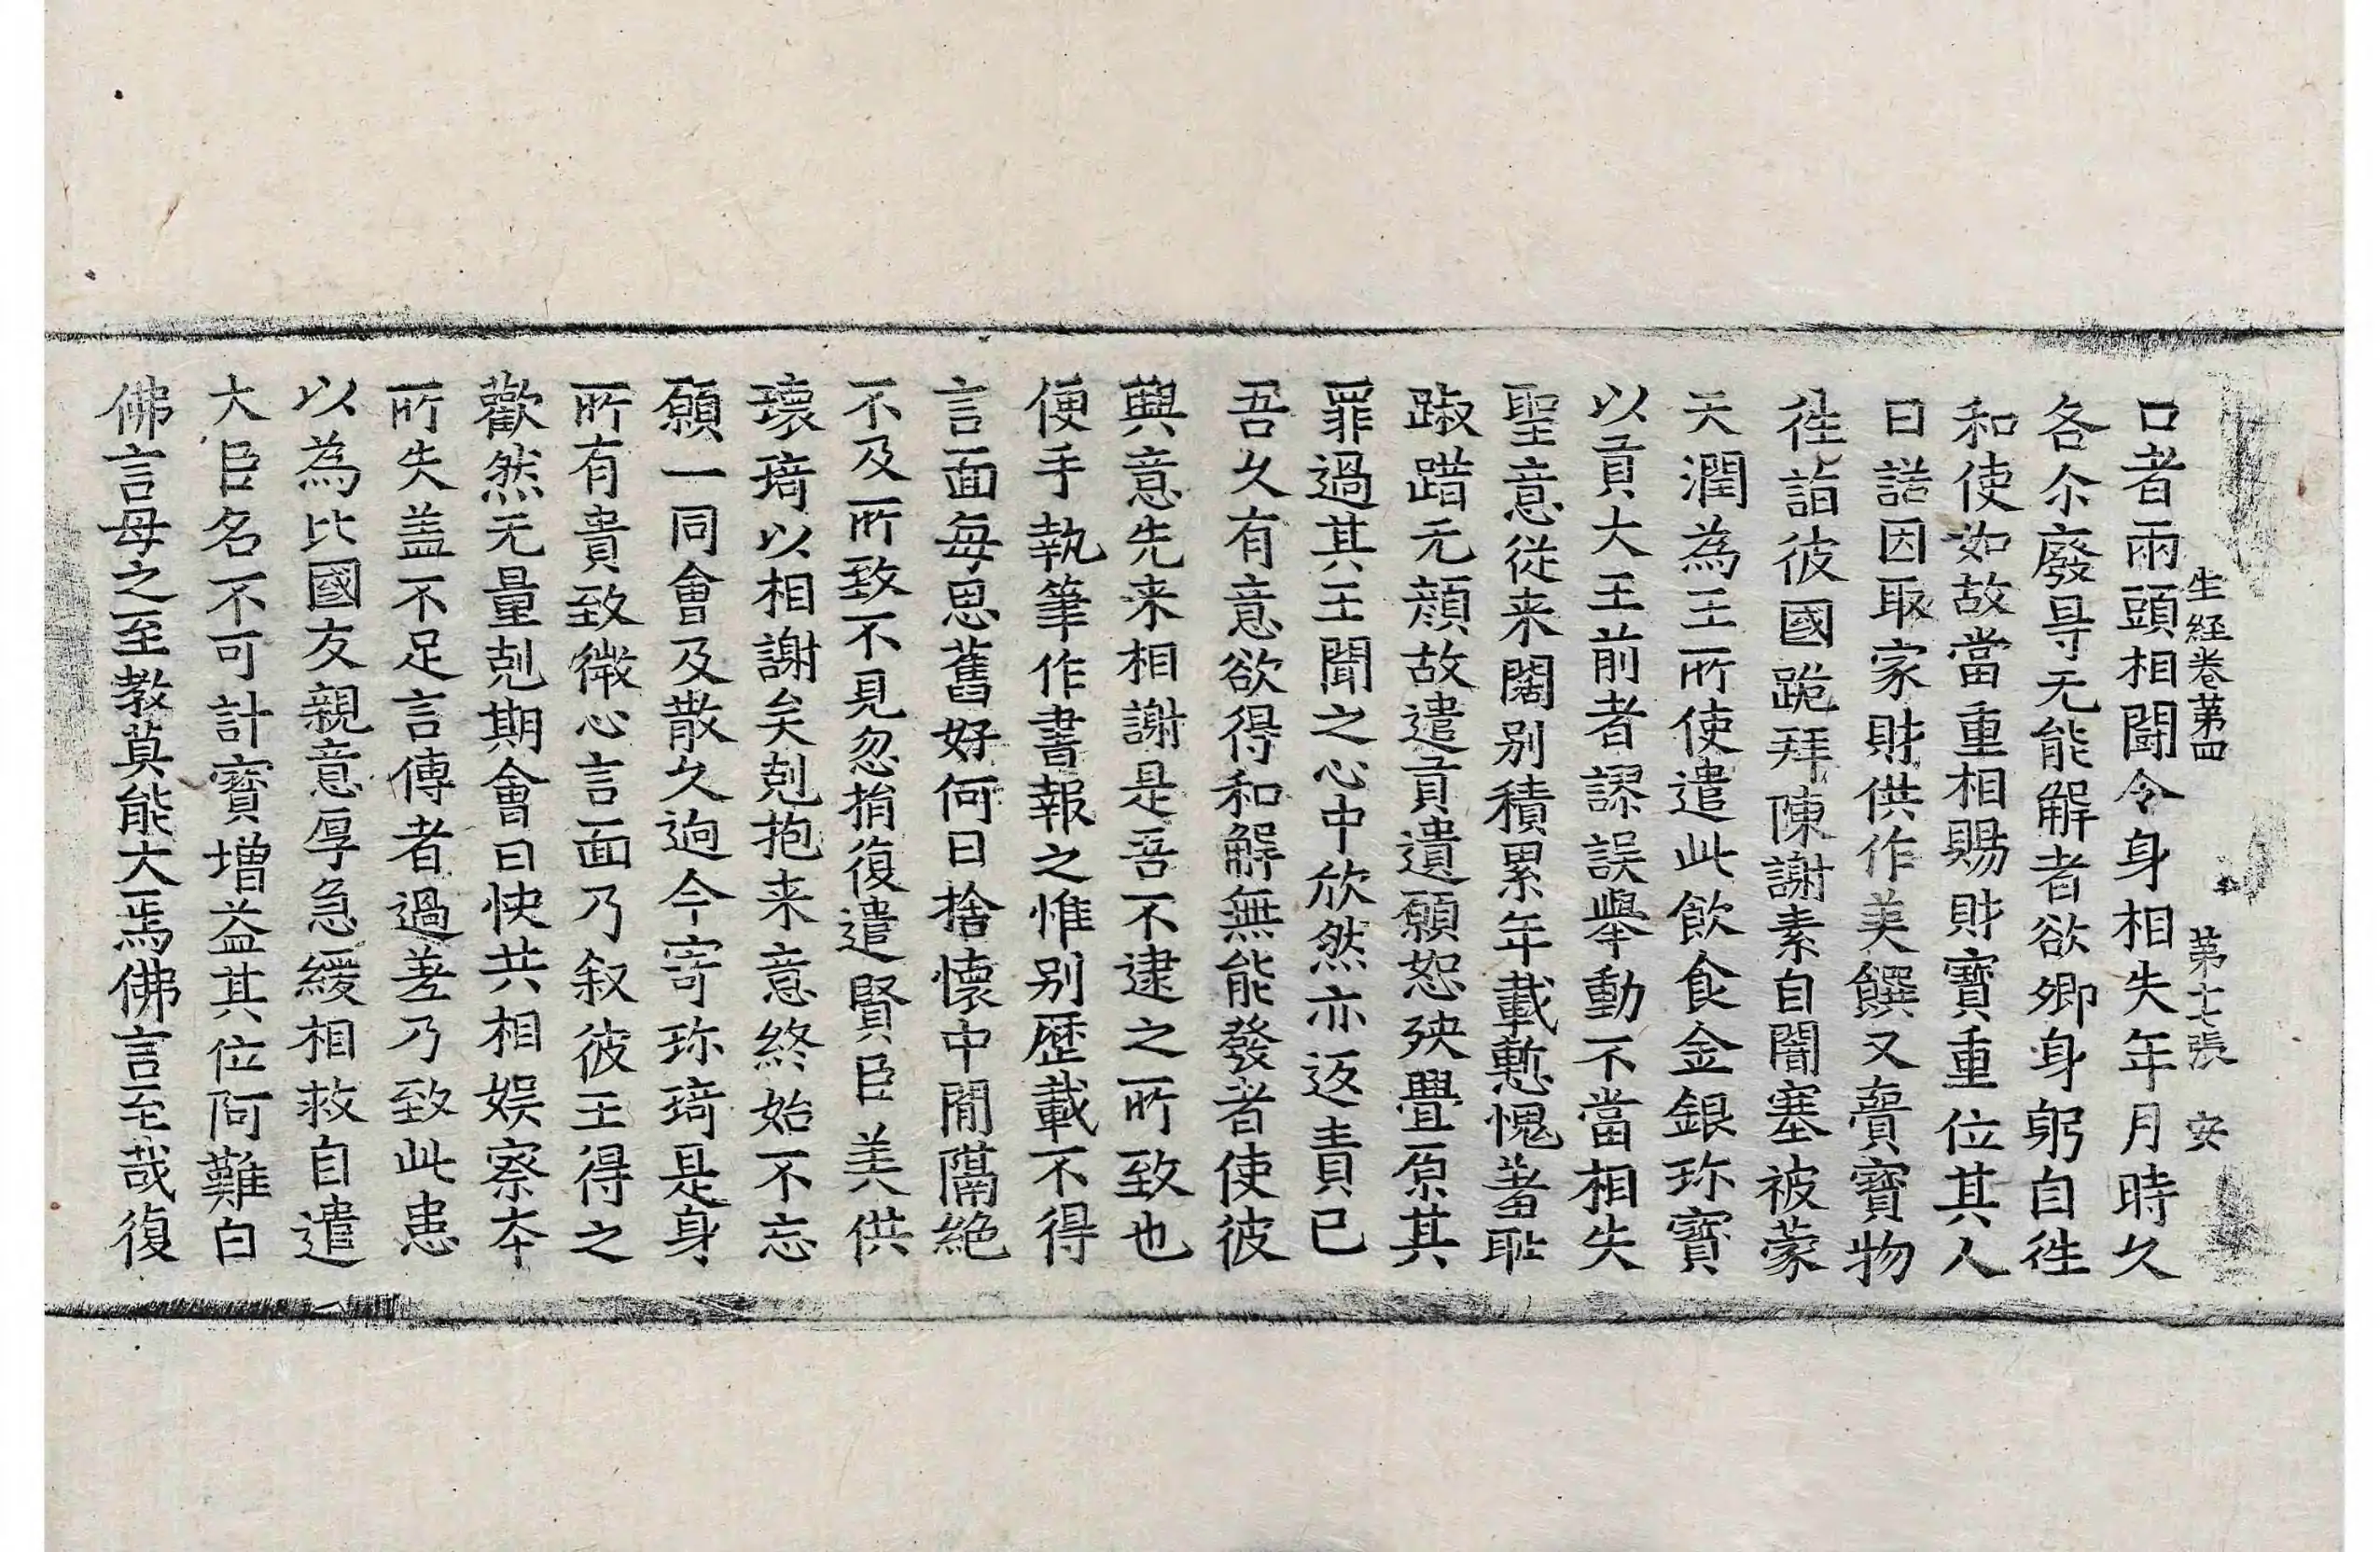 生経卷第四 第七張 安
口者兩頭相闘令身相失年月時久
各尒廢㝵无能解者欲卿身躬自徃
和使如故當重相賜財寶重位其人
曰諾因取家財供作美饌又賷寶物
徃詣彼國跪拜陳謝素自闇塞被蒙
天潤為王所使遣此飲食金銀珎寶
以貢大王前者謬誤擧動不當相失
聖意従来闊别積累年載慙愧羞耻
踧踖无顔故遣貢遺願恕殃舋原其
罪過其王聞之心中欣然亦返責已
吾久有意欲得和解無能發者使彼
興意先来相謝是吾不逮之所致也
便手執筆作書報之惟别歴載不得
言面每思舊好何日捨懷中間隔絶
不及所致不見忽捐復遣賢臣美供
瓌琦以相謝矣剋抱来意終始不忘
願一同會及散久逈今寄珎琦是身
所有貴致微心言面乃叙彼王得之
歡然无量剋期會曰快共相娱察夲
所失盖不足言傳者過差乃致此患
以為比國友親意厚急緩相救自遣
大臣名不可計寳增益其位阿難白
佛言母之至教莫能大焉佛言至哉復